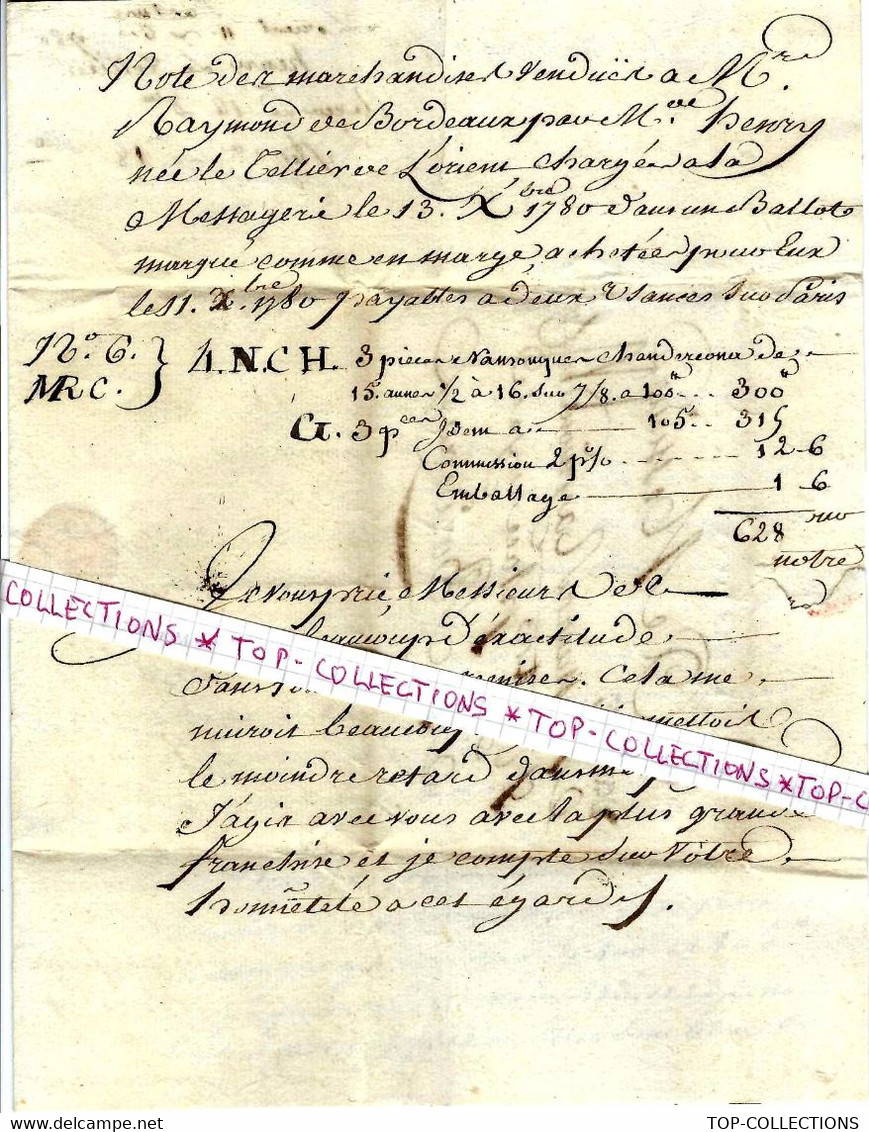 Note des marchandises Venduës a Mrs.
Raymond de Bordeaux par Mde. henry
née le Tellier de L'orient Chargées a la
Messagerie le 13. Xbre 1780 dans un Ballot
marqué comme en marge, achetées pour Eux
le 11. Xbre. 1780 payables a deux Usances sur Paris
No. 6. } 4. N. C H. 3 pieces Nansouques Chandercona de
MRC. 15. aunes 1/2 à 16. sur 7/8. a 100# .. 300#
G. 3 pces Idem a 105. .. 315
Commission 2 p% 12-6
Emballage 1 6
628
notre
Je vous prie, Messieurs de
beaucoup d'éxactitude
dans remises. Cela me
nuiroit beaucoup mettoit
le moindre retard dans
J'agis avec vous avec la plus grande
franchise et je compte sur Votre
honnêteté a cet égard.
COLLECTIONS * TOP-COLLECTIONS * TOP-COLLECTIONS * TOP-C
TOP-COLLECTIONS